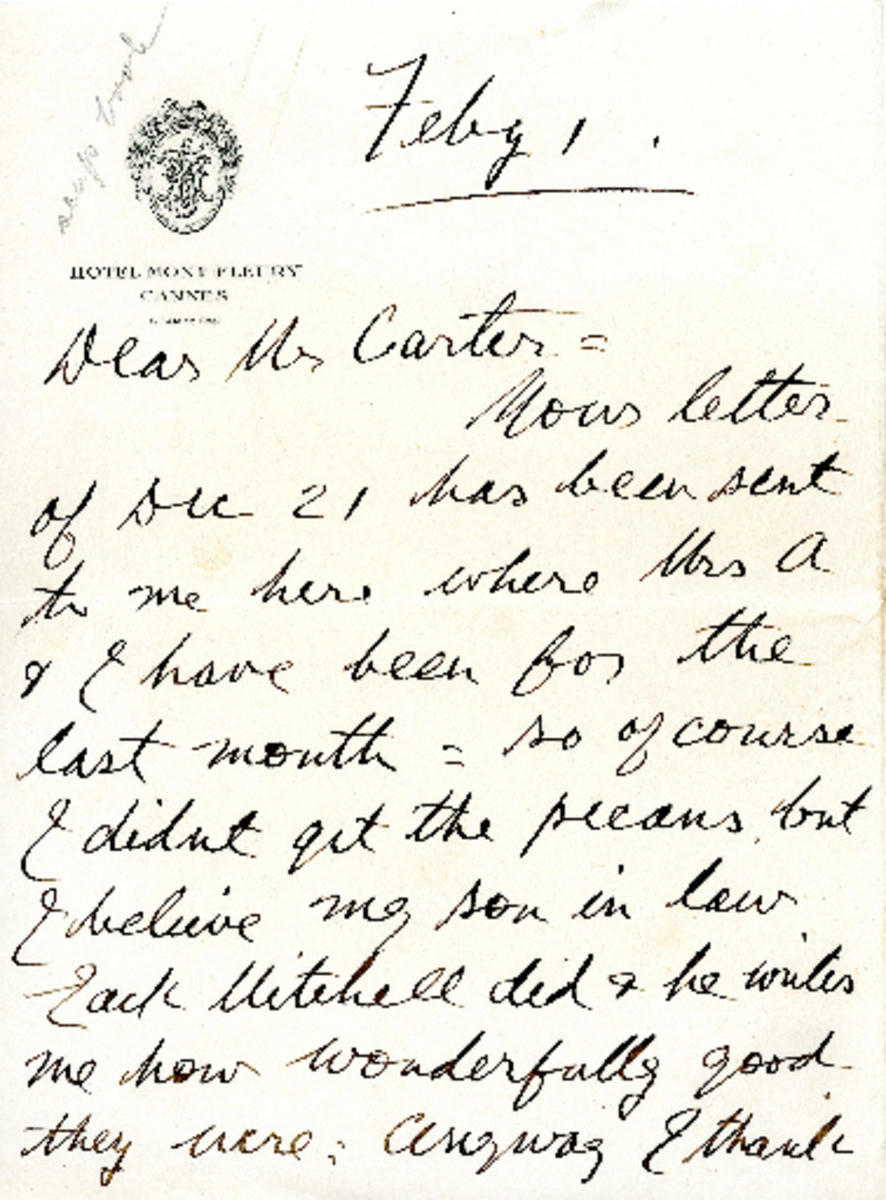 Feby 1.
HOTEL MONT FLEURY
CANNES
Dear Mr Carter =
Your letter
of Dec 21 has been sent
to me here where Mrs A
& I have been for the
last month = so of course
I didnt get the pecans, but
I believe my son in law
Jack Mitchell did & he writes
me how wonderfully good
they were: Anyway I thank